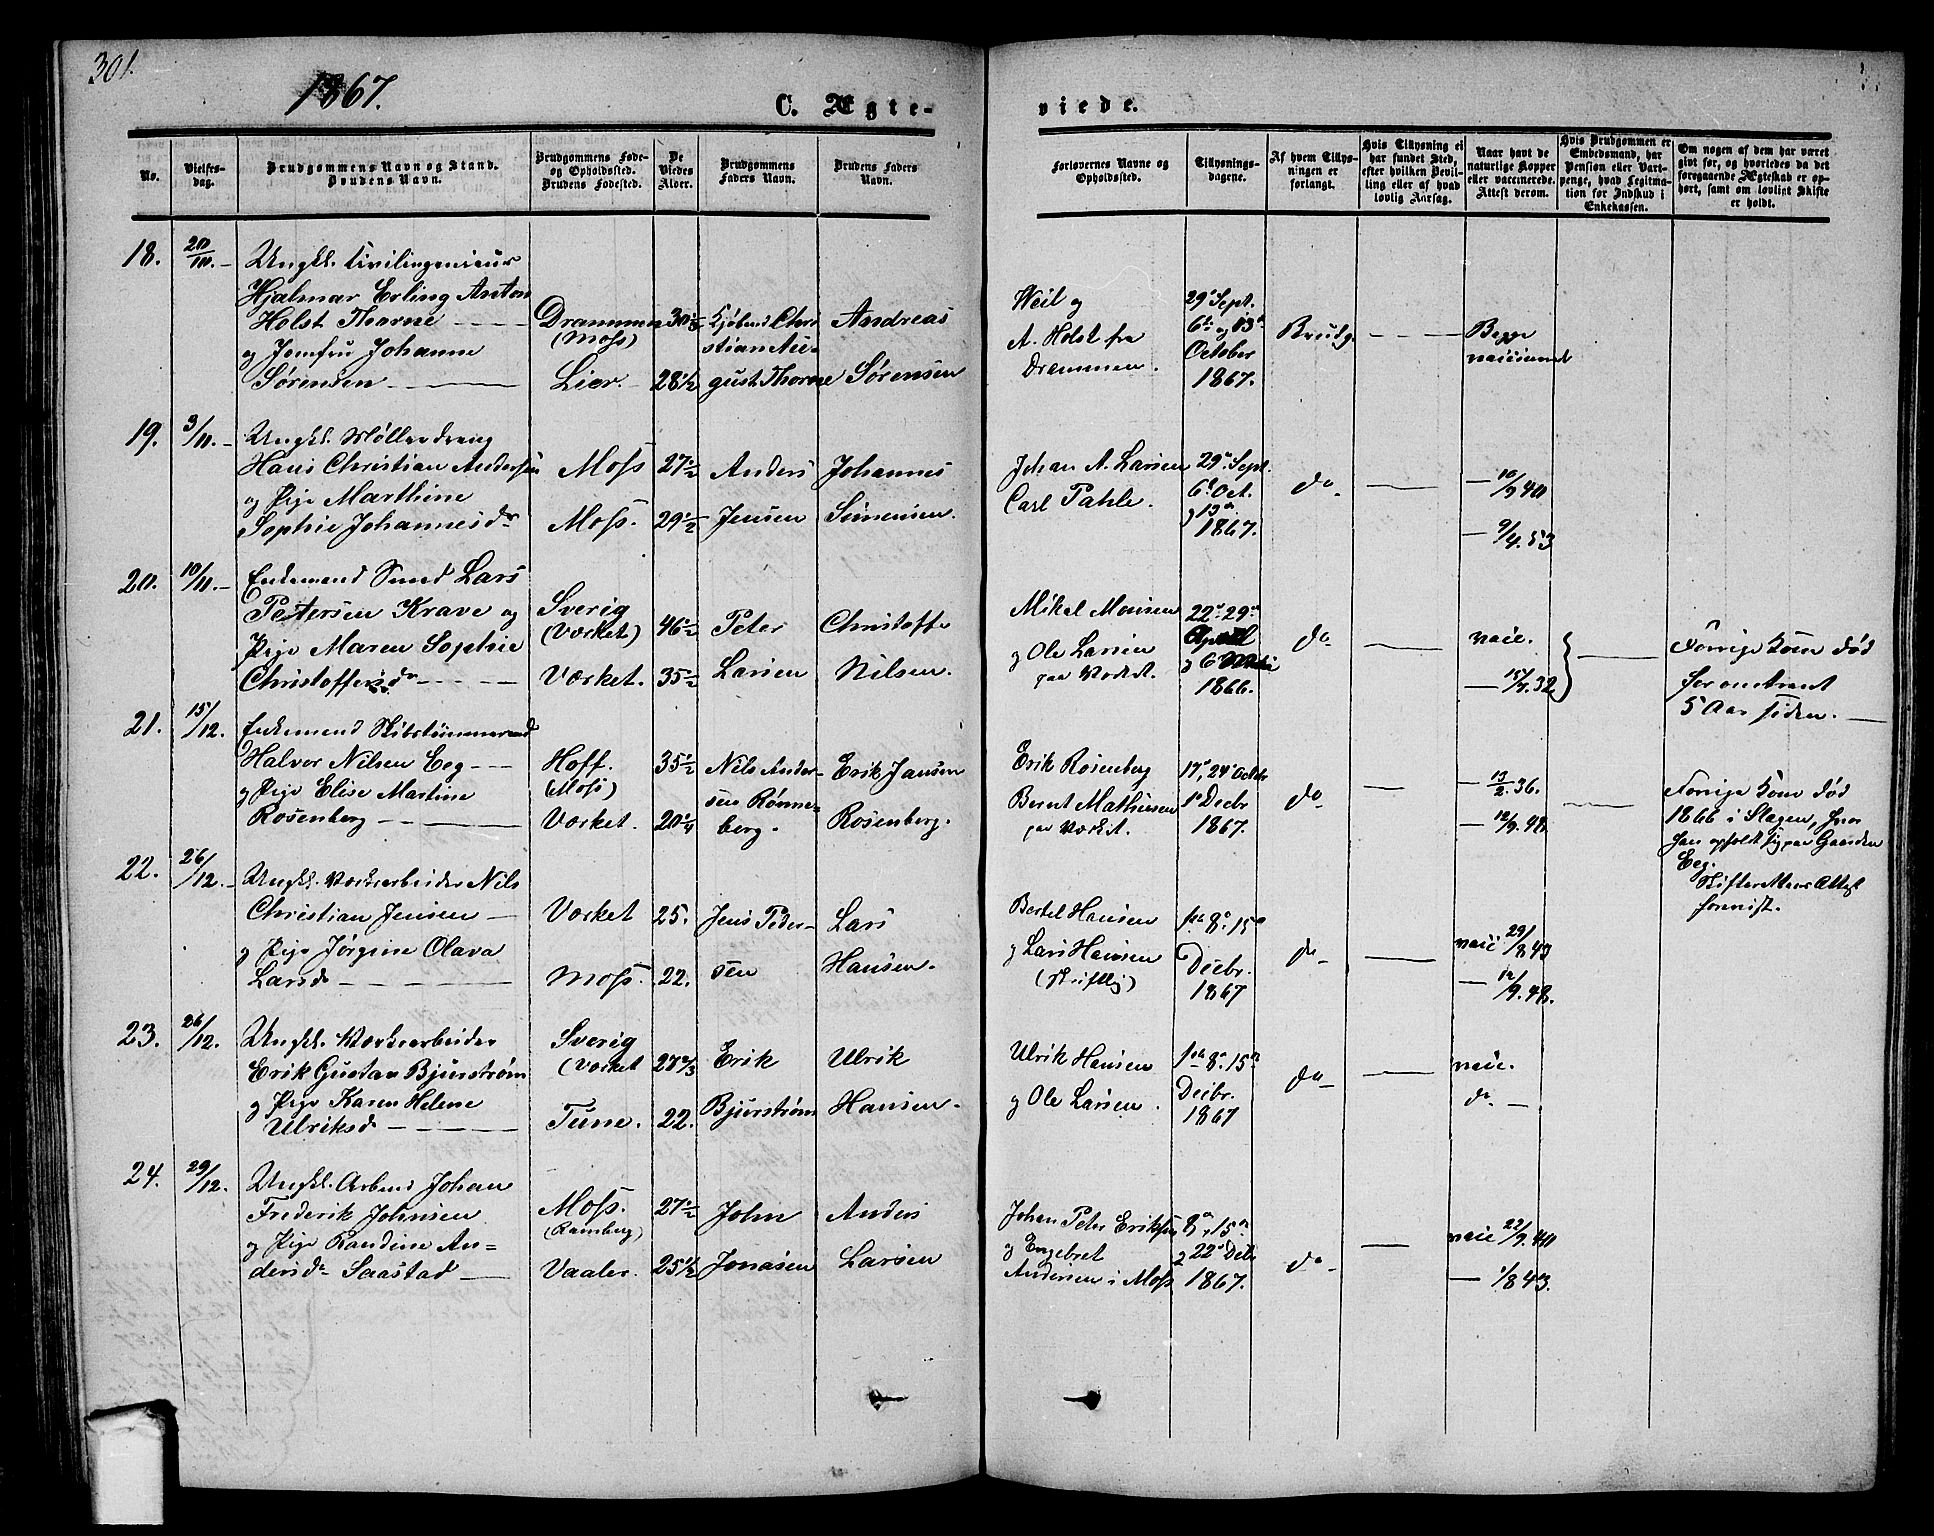 301.
1867.
C. Ægte-
viede.
No.
Vielses-
dag.
Brudgommens Navn og Stand.
Brudens Navn.
Brudgommens Føde-
og Opholdssted.
Brudens Fødested.
De
Viedes
Alder.
Brudgommens
Faders Navn.
Brudens Faders
Navn.
Forlovernes Navne og
Opholdssted.
Tillysnings-
dagene.
Af hvem Tillys-
ningen er
forlangt.
Hvis Tillysning ei
har fundet Sted,
efter hvilken Bevil-
ling eller af hvad
lovlig Aarsag.
Naar havt de
naturlige Kopper
eller vaccinerede.
Attest derom.
Hvis Brudgommen er
Embedsmand, har
Pension eller Vart-
penge, hvad Legitima-
tion for Indskud i
Enkekassen.
Om nogen af dem har været
gift før, og hvorledes da det
foregaaende Ægteskab er op-
hørt, samt om lovligt Skifte
er holdt.
18. 20/10. Ungkl. Civilingenieur
Hjalmar Erling Anton
Holst Thorne
og Jomfru Johanne
Sørensen
Drammen
(Moss)
Lier.
28 1/2
Kjøbmd Chri
stian Au-
gust Thorne
Andreas
Sørensen
Weil og
A. Holst fra
Drammen.
29de Sept.
6te og 13de
October
1867.
Brudg.
Begge
19. 3/11. Ungkl. Møllerdreng
Hans Christian Andersen
og Pige Marthine
Sophie Johannesdr
Moss
Moss.
27 1/2
29 1/2
Anders
Jensen
Johannes
Simensen.
Johan A. Larsen
Carl Pahle.
29de Sept.
6te Oct.
og 13de
1867.
do
10/9 40
9/4. 53
20. 10/11. Enkemand Smed Lars
Pettersen Krave og
Pige Maren Sophie
Christoffersdr
Sverig
(Værket)
Værket.
46 1/2
35 1/2
Peter
Larsen
Christoffe
Nilsen.
Mikal Monsen
og Ole Larsen
paa Værket.
22de 29de
April
og 6te Mai
1866.
do
vacc.
32
Forrige Kone død
for omtrent
5 Aar siden.
21. 15/12. Enkemand Skibstømmermd
Halvor Nilsen Eeg
og Pige Elise Martine
Rosenberg
Hoff.
(Moss)
Værket.
35 1/2
20 1/4
Nils Ander-
sen Rønne-
berg.
Erik Jansen
Rosenberg.
Erik Rosenberg
Bernt Mathiesen
paa Værket.
17de, 24de Octbr
1ste Decbr
1867.
do
13/2. 36.
12/9. 48.
Forrige Kone død
1866 i Slagen, hvor
han opholdt sig paa Gaarden
Eeg.
Skifterettens Attest
forevist.
22. 26/12. Ungkl. Værksarbeider Nils
Christian Jensen
og Pige Jørgine Olava
Larsd
Værket
Moss.
25.
22.
Jens Peder-
sen
Lars
Hansen.
Bertel Hansen
og Lars Hansen
(Skriftlig)
1ste 8de 15de
Decbr.
1867
do
vacc 29/8 43
12/9. 48.
23. 26/12. Ungkl. Værksarbeider
Erik Gustav Bjurstrøm
og Pige Karen Helene
Ulriksd
Sverig
(Værket
Tune.
22.
Erik
Bjurstrøm
Ulrik
Hansen.
Ulrik Hansen
og Ole Larsen.
1ste 8de 15de
Decbr.
1867
do
vacc.
do
24. 29/12. Ungkl. Arbmd Johan
Frederik Johnsen
og Pige Randine An=
dersdr Saastad
Moss.
(Ramberg)
Vaaler.
27 1/2
25 1/2
John
Jonasen
Anders
Larsen
Johan Peter Eriksen
og Engebret
Andersen i Moss
8de, 15de
og 22de Decbr
1867.
do
vacc 22/9. 40
1/8 43.